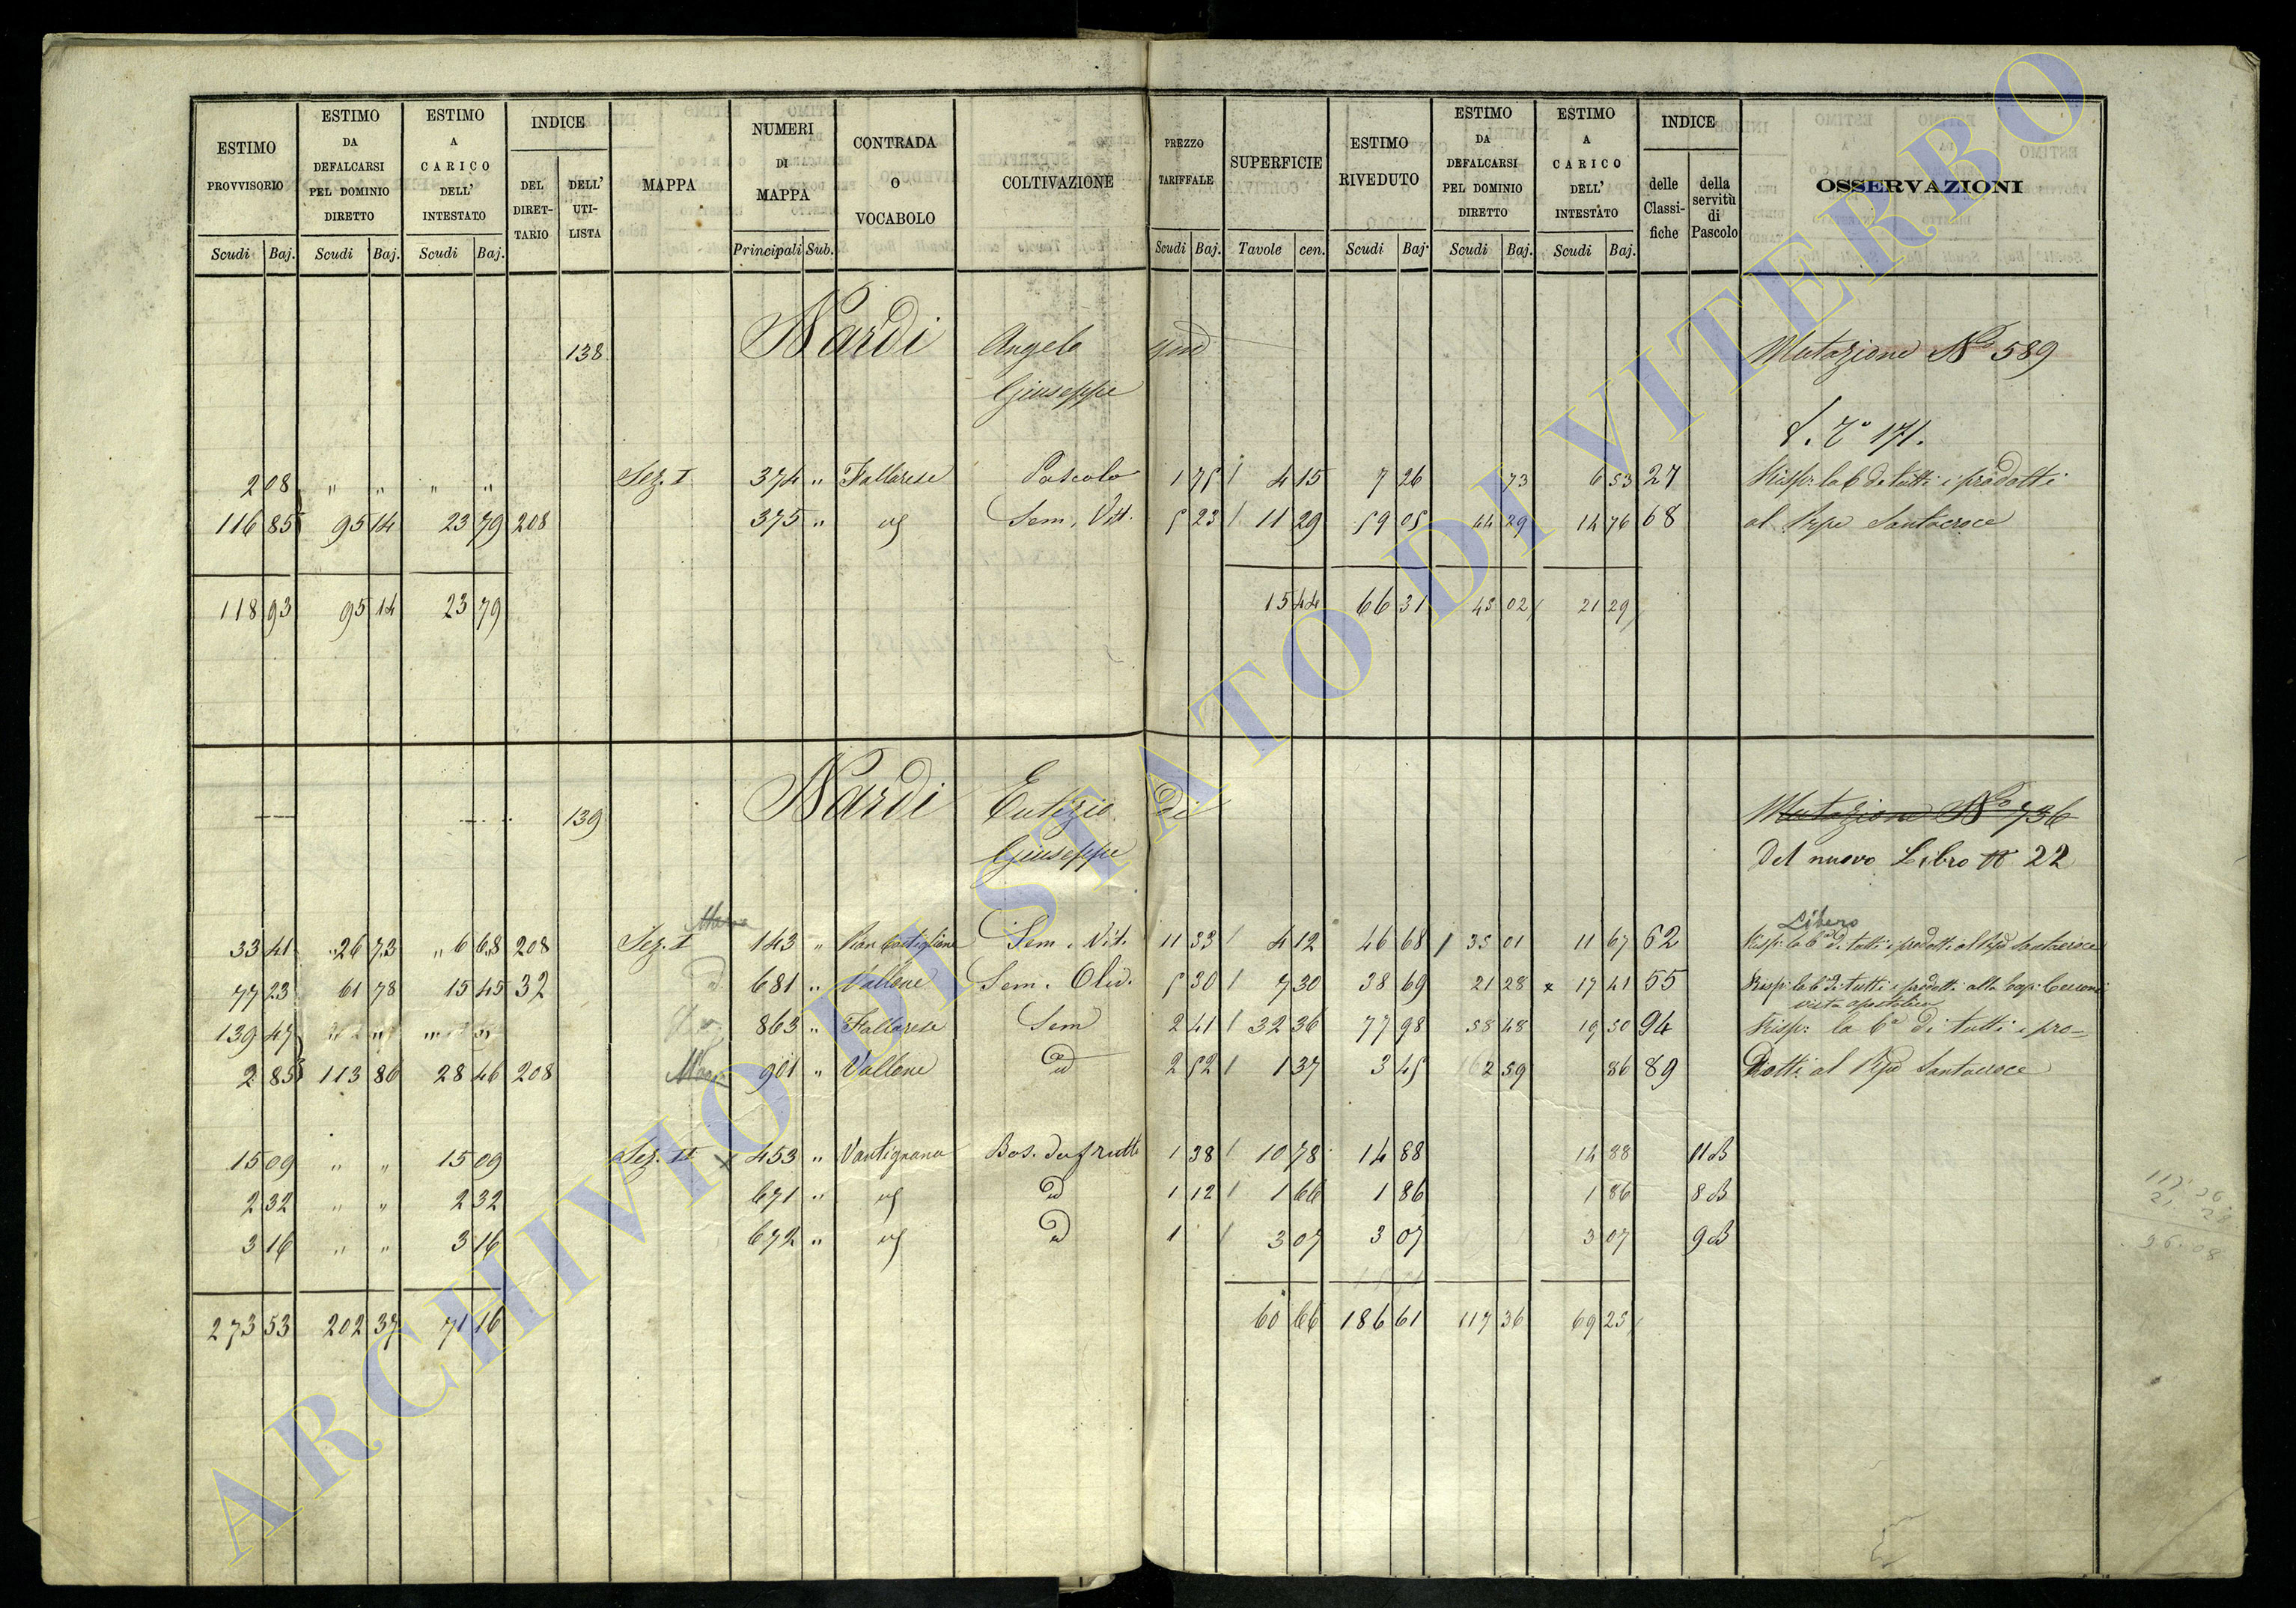 ESTIMO PROVVISORIO Scudi Baj. | ESTIMO DA DEFALCARSI PEL DOMINIO DIRETTO Scudi Baj. | ESTIMO A CARICO DELL' INTESTATO Scudi Baj. | INDICE DEL DIRET-TARIO | DELL' UTI-LISTA | MAPPA | NUMERI DI MAPPA Principali Sub. | CONTRADA O VOCABOLO | COLTIVAZIONE | PREZZO TARIFFALE Scudi Baj. | SUPERFICIE Tavole cen. | ESTIMO RIVEDUTO Scudi Baj. | ESTIMO DA DEFALCARSI PEL DOMINIO DIRETTO Scudi Baj. | ESTIMO A CARICO DELL' INTESTATO Scudi Baj. | INDICE delle Classi-fiche | della servitù di Pascolo | OSSERVAZIONI
138 Nardi Angelo qm Mutazione No 589
Giuseppe
171.
2 08 " " " " Sez. I 374 " Fallarese Pascolo 1 75 4 15 7 26 73 6 53 27 Risp: la 6 di tutti i prodotti
116 85 95 14 23 79 208 375 " id Sem. Vit. 5 23 11 29 59 05 44 29 14 76 68 al Pnpe Santacroce
118 93 95 14 23 79 15 44 66 31 45 02 21 29
139 Nardi Eutizio di Mutazione No 736
Giuseppe Del nuovo Libro N 22
Libero
33 41 26 73 6 68 208 Sez. I 143 " Pian Castiglione Sem. Vit. 11 33 4 12 46 68 35 01 11 67 62 Risp: la 6a di tutti i prodotti al Pnpe Santacroce
77 23 61 78 15 45 32 681 " Vallone Sem. Oliv. 5 30 7 30 38 69 21 28 x 17 41 55 Risp: la 6a di tutti i prodotti alla Cap:
visita apostolica
139 47 863 " Fallarese Sem 2 41 32 36 77 98 58 48 19 50 94 Risp: la 6a di tutti i pro=
2 85 113 86 28 46 208 901 " Vallone id 2 52 1 37 3 45 2 59 86 89 Dotti al Pnpe Santacroce
15 09 " " 15 09 Sez. II x 453 " Vantignano Bos. da frutto 1 38 10 78 14 88 14 88 11 B
2 32 " " 2 32 671 " id id 1 12 1 66 1 86 1 86 8 B
3 16 " " 3 16 672 " id id 1 3 07 3 07 3 07 9 B
273 53 202 37 71 16 60 66 186 61 117 36 69 25
117 36
21 28
96.08
ARCHIVIO DI STATO DI VITERBO